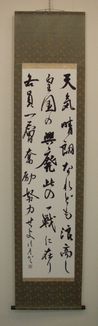 天気晴朗なれども浪高し
皇国の興廃此の一戦に在り
各員一層奮励努力せよ